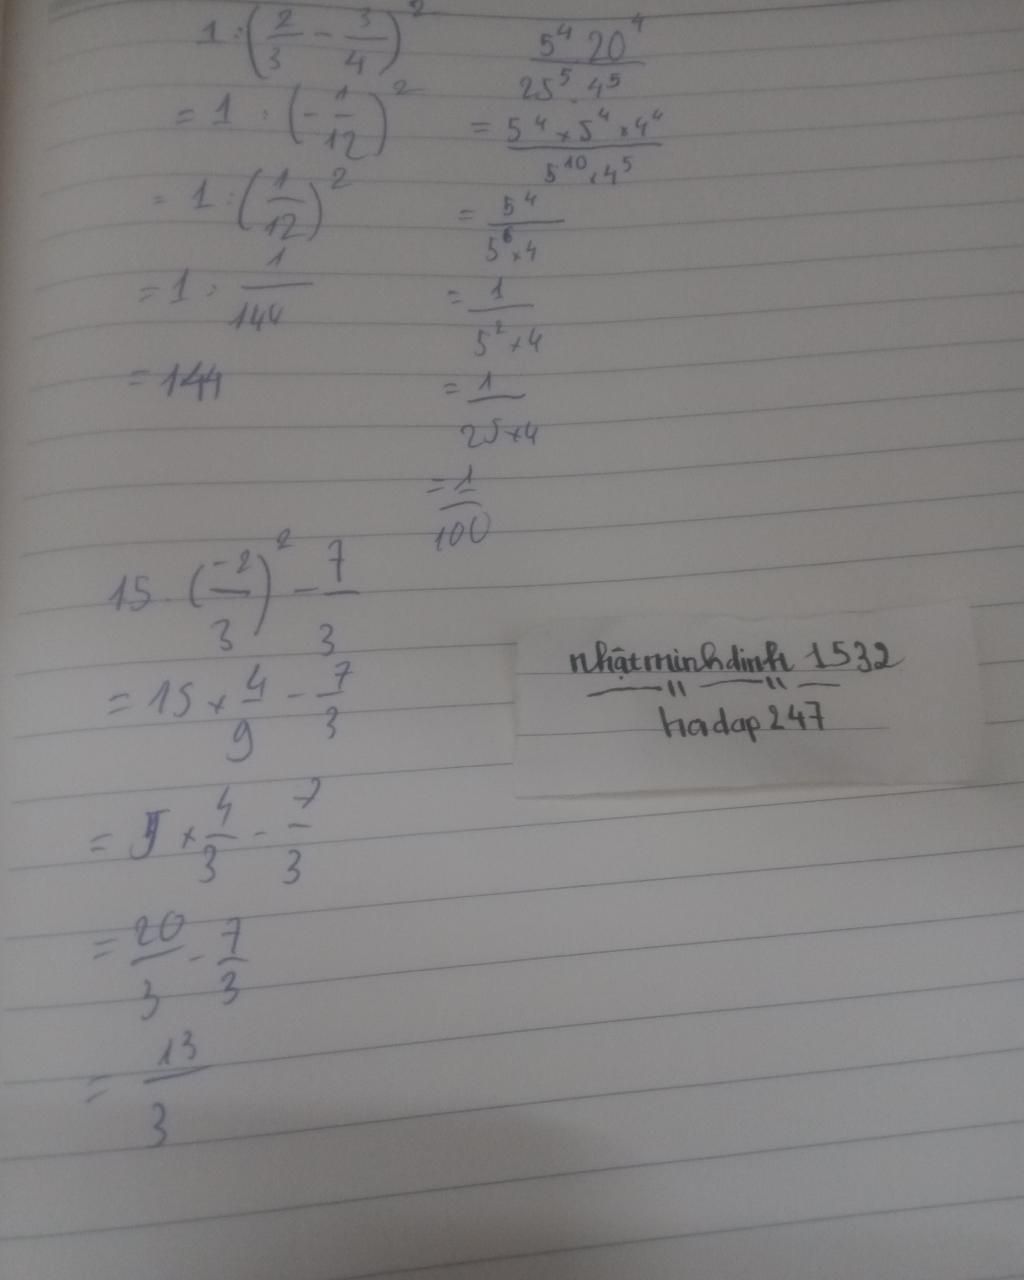 1 : (2/3 - 3/4)²
= 1 : (-1/12)²
= 1 : (1/12)²
= 1 : 1/144
= 144
5⁴ 20⁴ / 25⁵ . 4⁵
= 5⁴ × 5⁴ × 4⁴ / 5¹⁰ × 4⁵
= 5⁴ / 5⁶ × 4
= 1 / 5² × 4
= 1 / 25 × 4
= 1 / 100
15 . (-2/3)² - 7/3
= 15 × 4/9 - 7/3
= 5 × 4/3 - 7/3
= 20/3 - 7/3
= 13/3
nhậtminhdinh 1532
hadap247